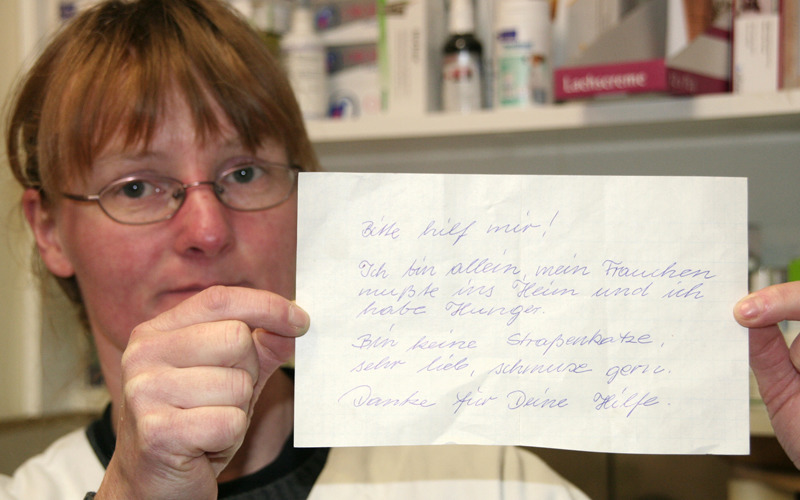 Lachscreme
Bitte hilf mir!
Ich bin allein, mein Frauchen
mußte ins Heim und ich
habe Hunger.
Bin keine Straßenkatze,
sehr lieb, schmuse gern.
Danke für Deine Hilfe.